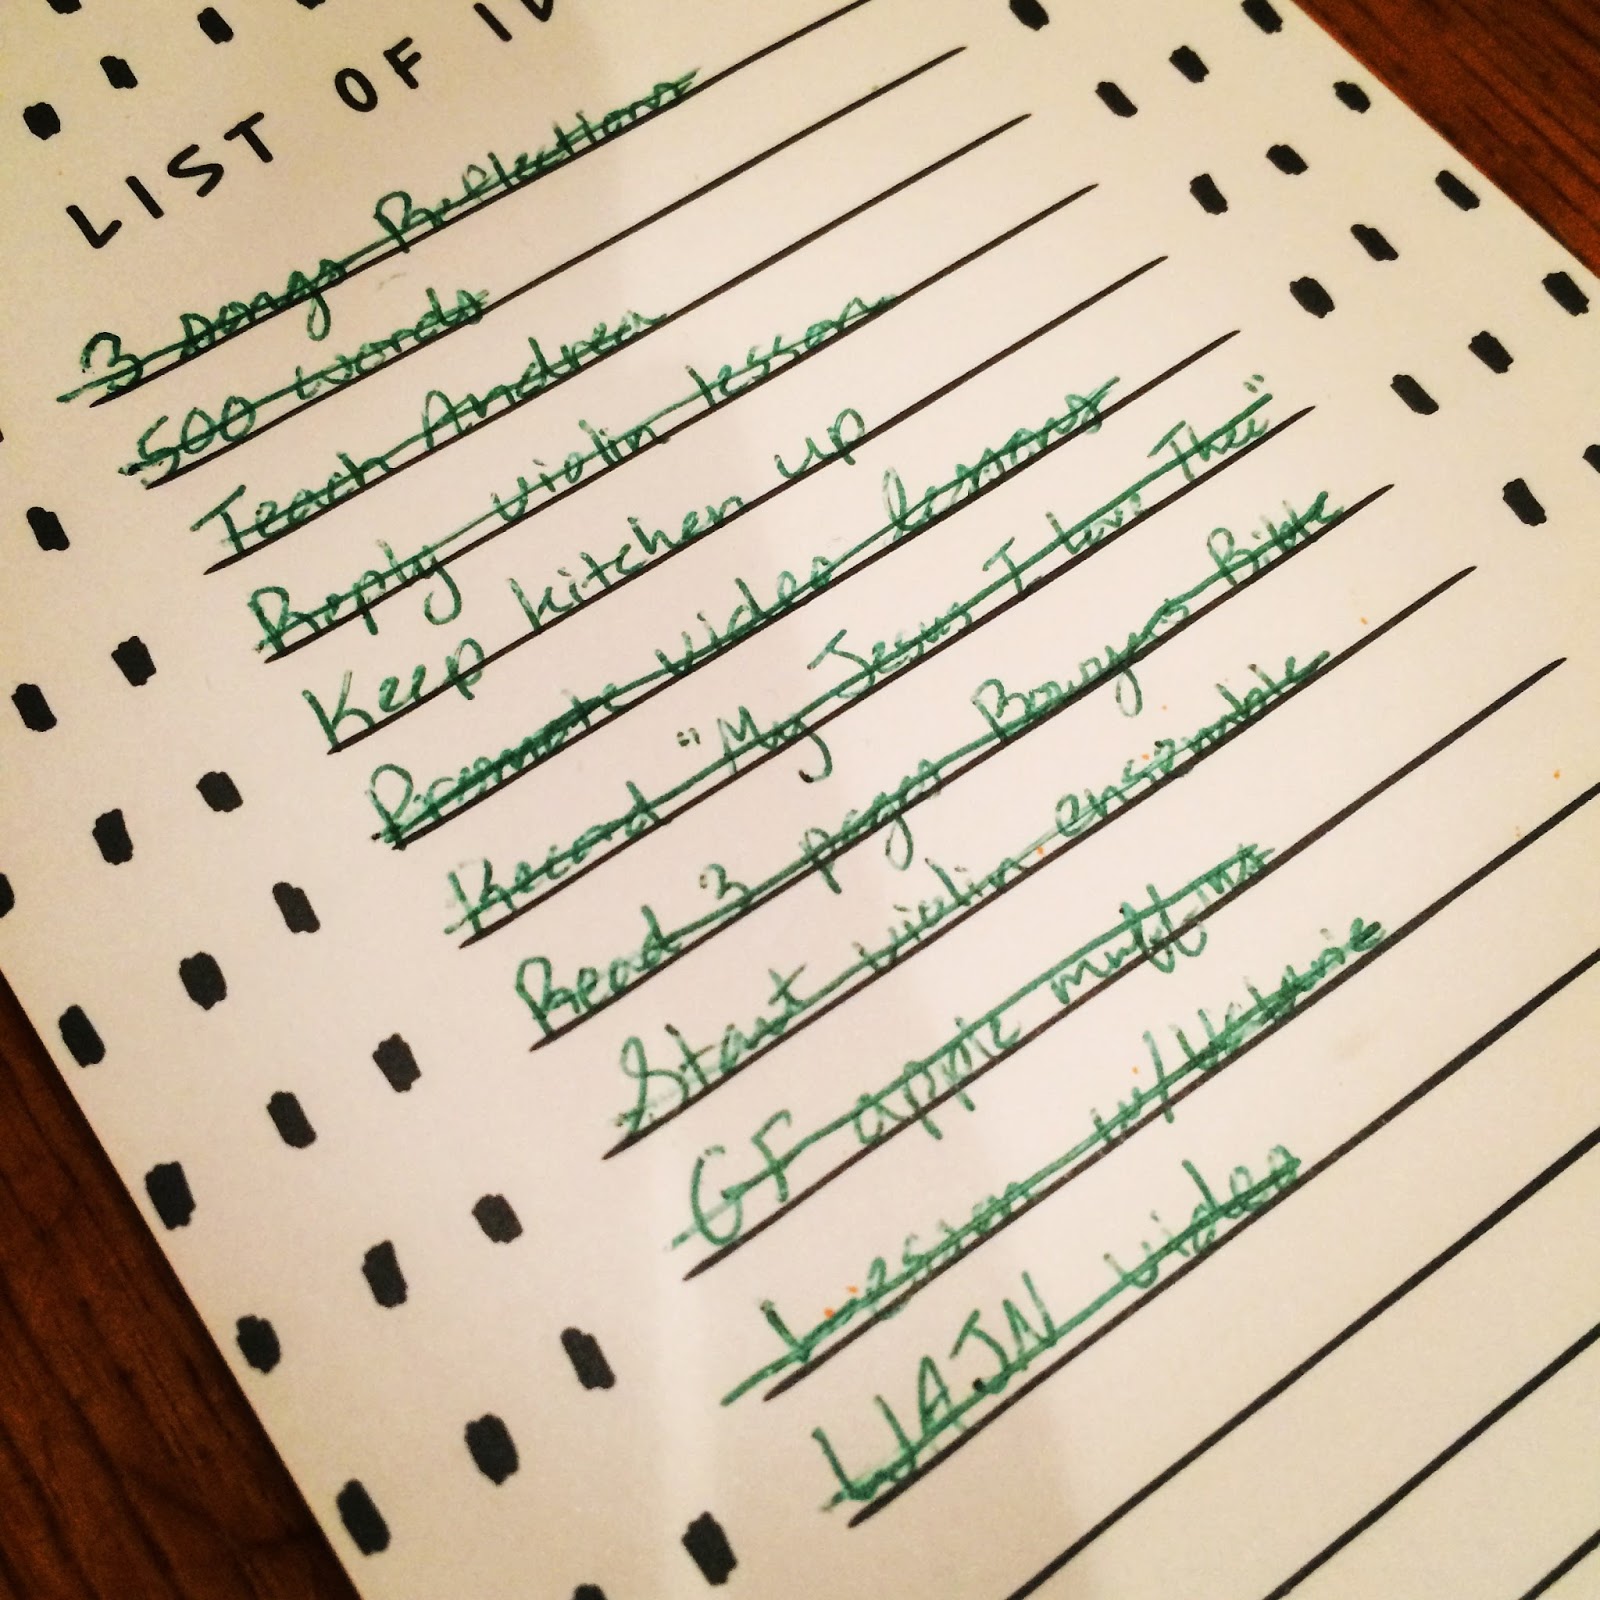 LIST OF
3 songs Reflections
500 words
Teach Andrea
Reply violin lesson
Keep kitchen up
Promote video lessons
Record "My Jesus I Love Thee"
Read 3 pages Bible
Start violin ensemble
GF apple muffins
Lesson w/
video